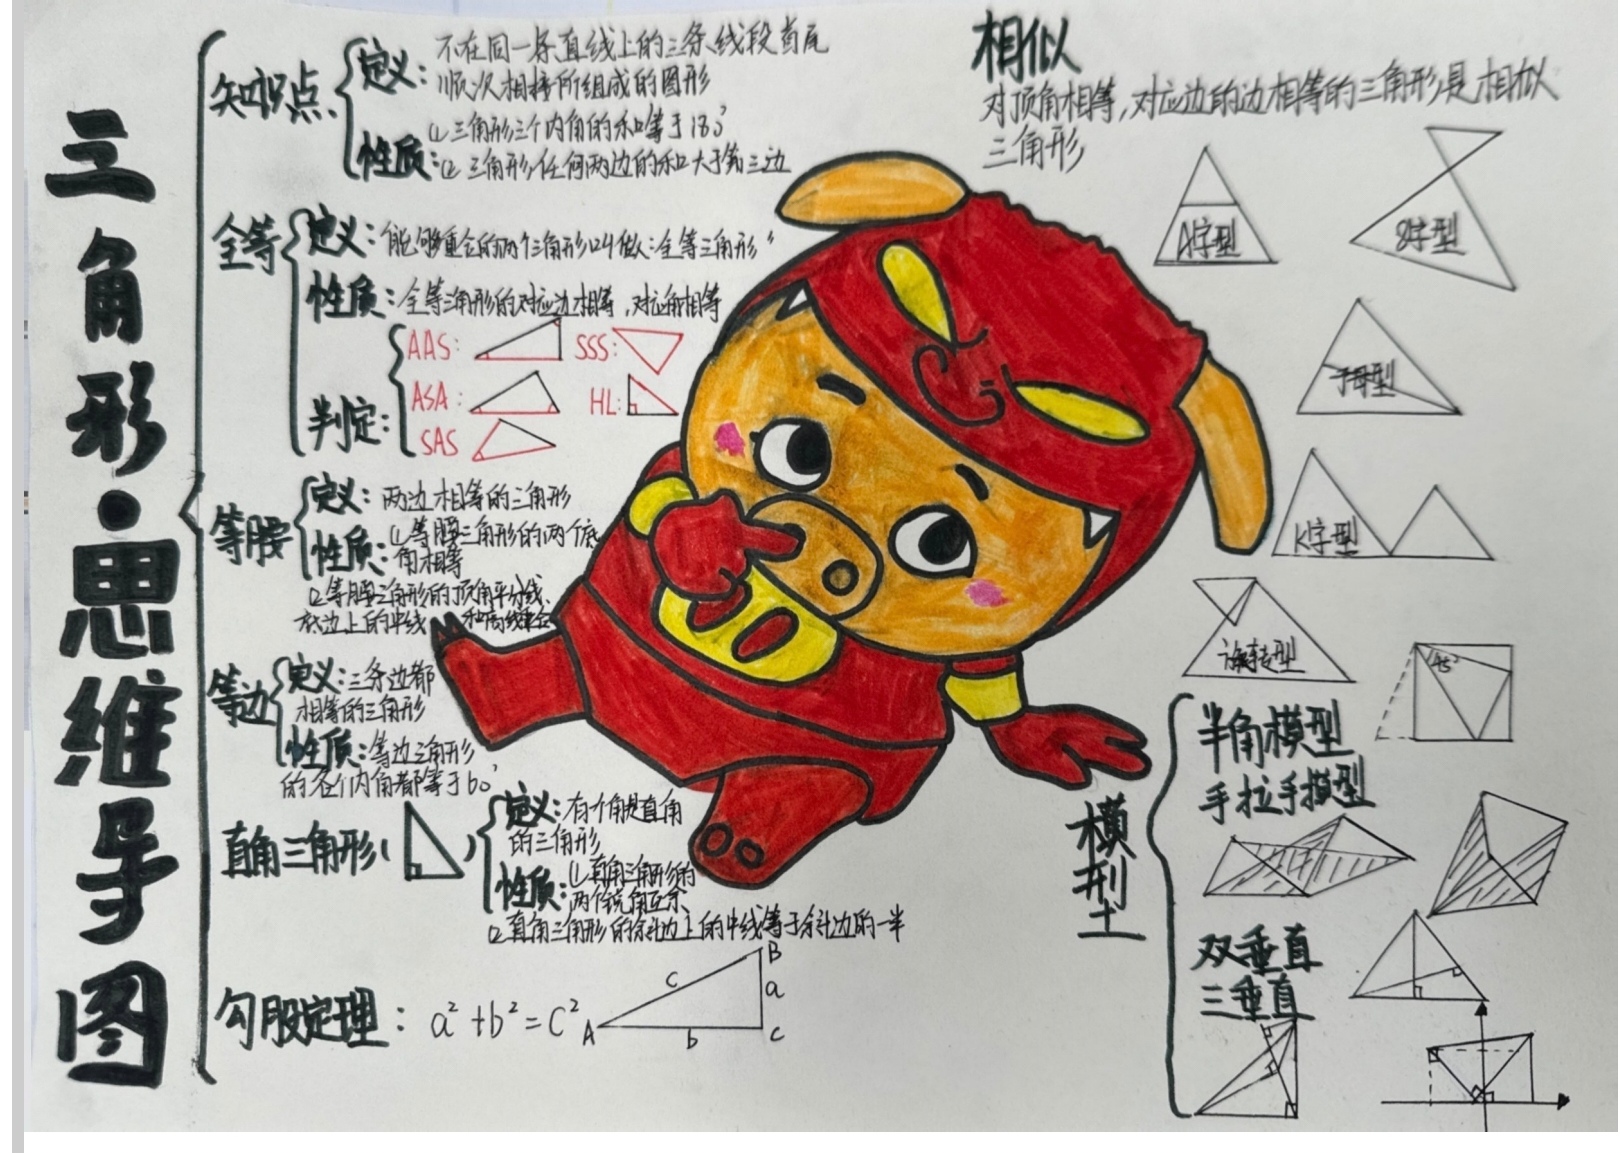 三角形·思维导图
知识点
定义：不在同一条直线上的三条线段首尾
顺次相接所组成的图形
性质：
①三角形三个内角的和等于180°
②三角形任何两边的和大于第三边
全等
定义：能够重合的两个三角形叫做：全等三角形
性质：全等三角形的对应边相等，对应角相等
判定：
AAS：
SSS：
ASA：
HL：
SAS
等腰
定义：两边相等的三角形
性质：①等腰三角形的两个底
角相等
②等腰三角形的顶角平分线、
底边上的中线和高线重合
等边
定义：三条边都
相等的三角形
性质：等边三角形
的各个内角都等于60°
直角三角形（ ）
定义：有个角是直角
的三角形
性质：①直角三角形的
两个锐角互余
②直角三角形的斜边上的中线等于斜边的一半
勾股定理：a²+b²=C²
A
B
C
c
a
b
相似
对顶角相等，对应边的边相等的三角形是相似
三角形
A字型
8字型
子母型
K字型
旋转型
模型
半角模型
45°
手拉手模型
双垂直
三垂直